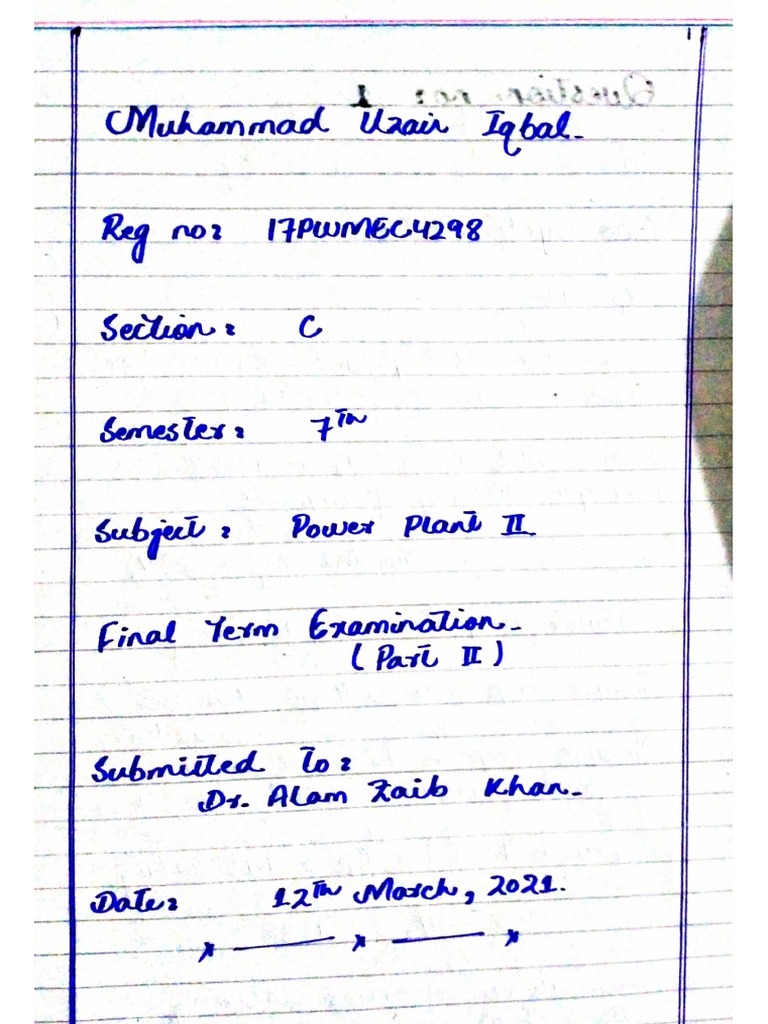 1
Question no: 1
Muhammad Uzair Iqbal.
Reg no: 17PWMEC4298
Section: C
Semester: 7th
Subject: Power Plant II
Final Term Examination.
(Part II)
Submitted to:
Dr. Alam Zaib Khan.
Date: 12th March, 2021.
x — x — x